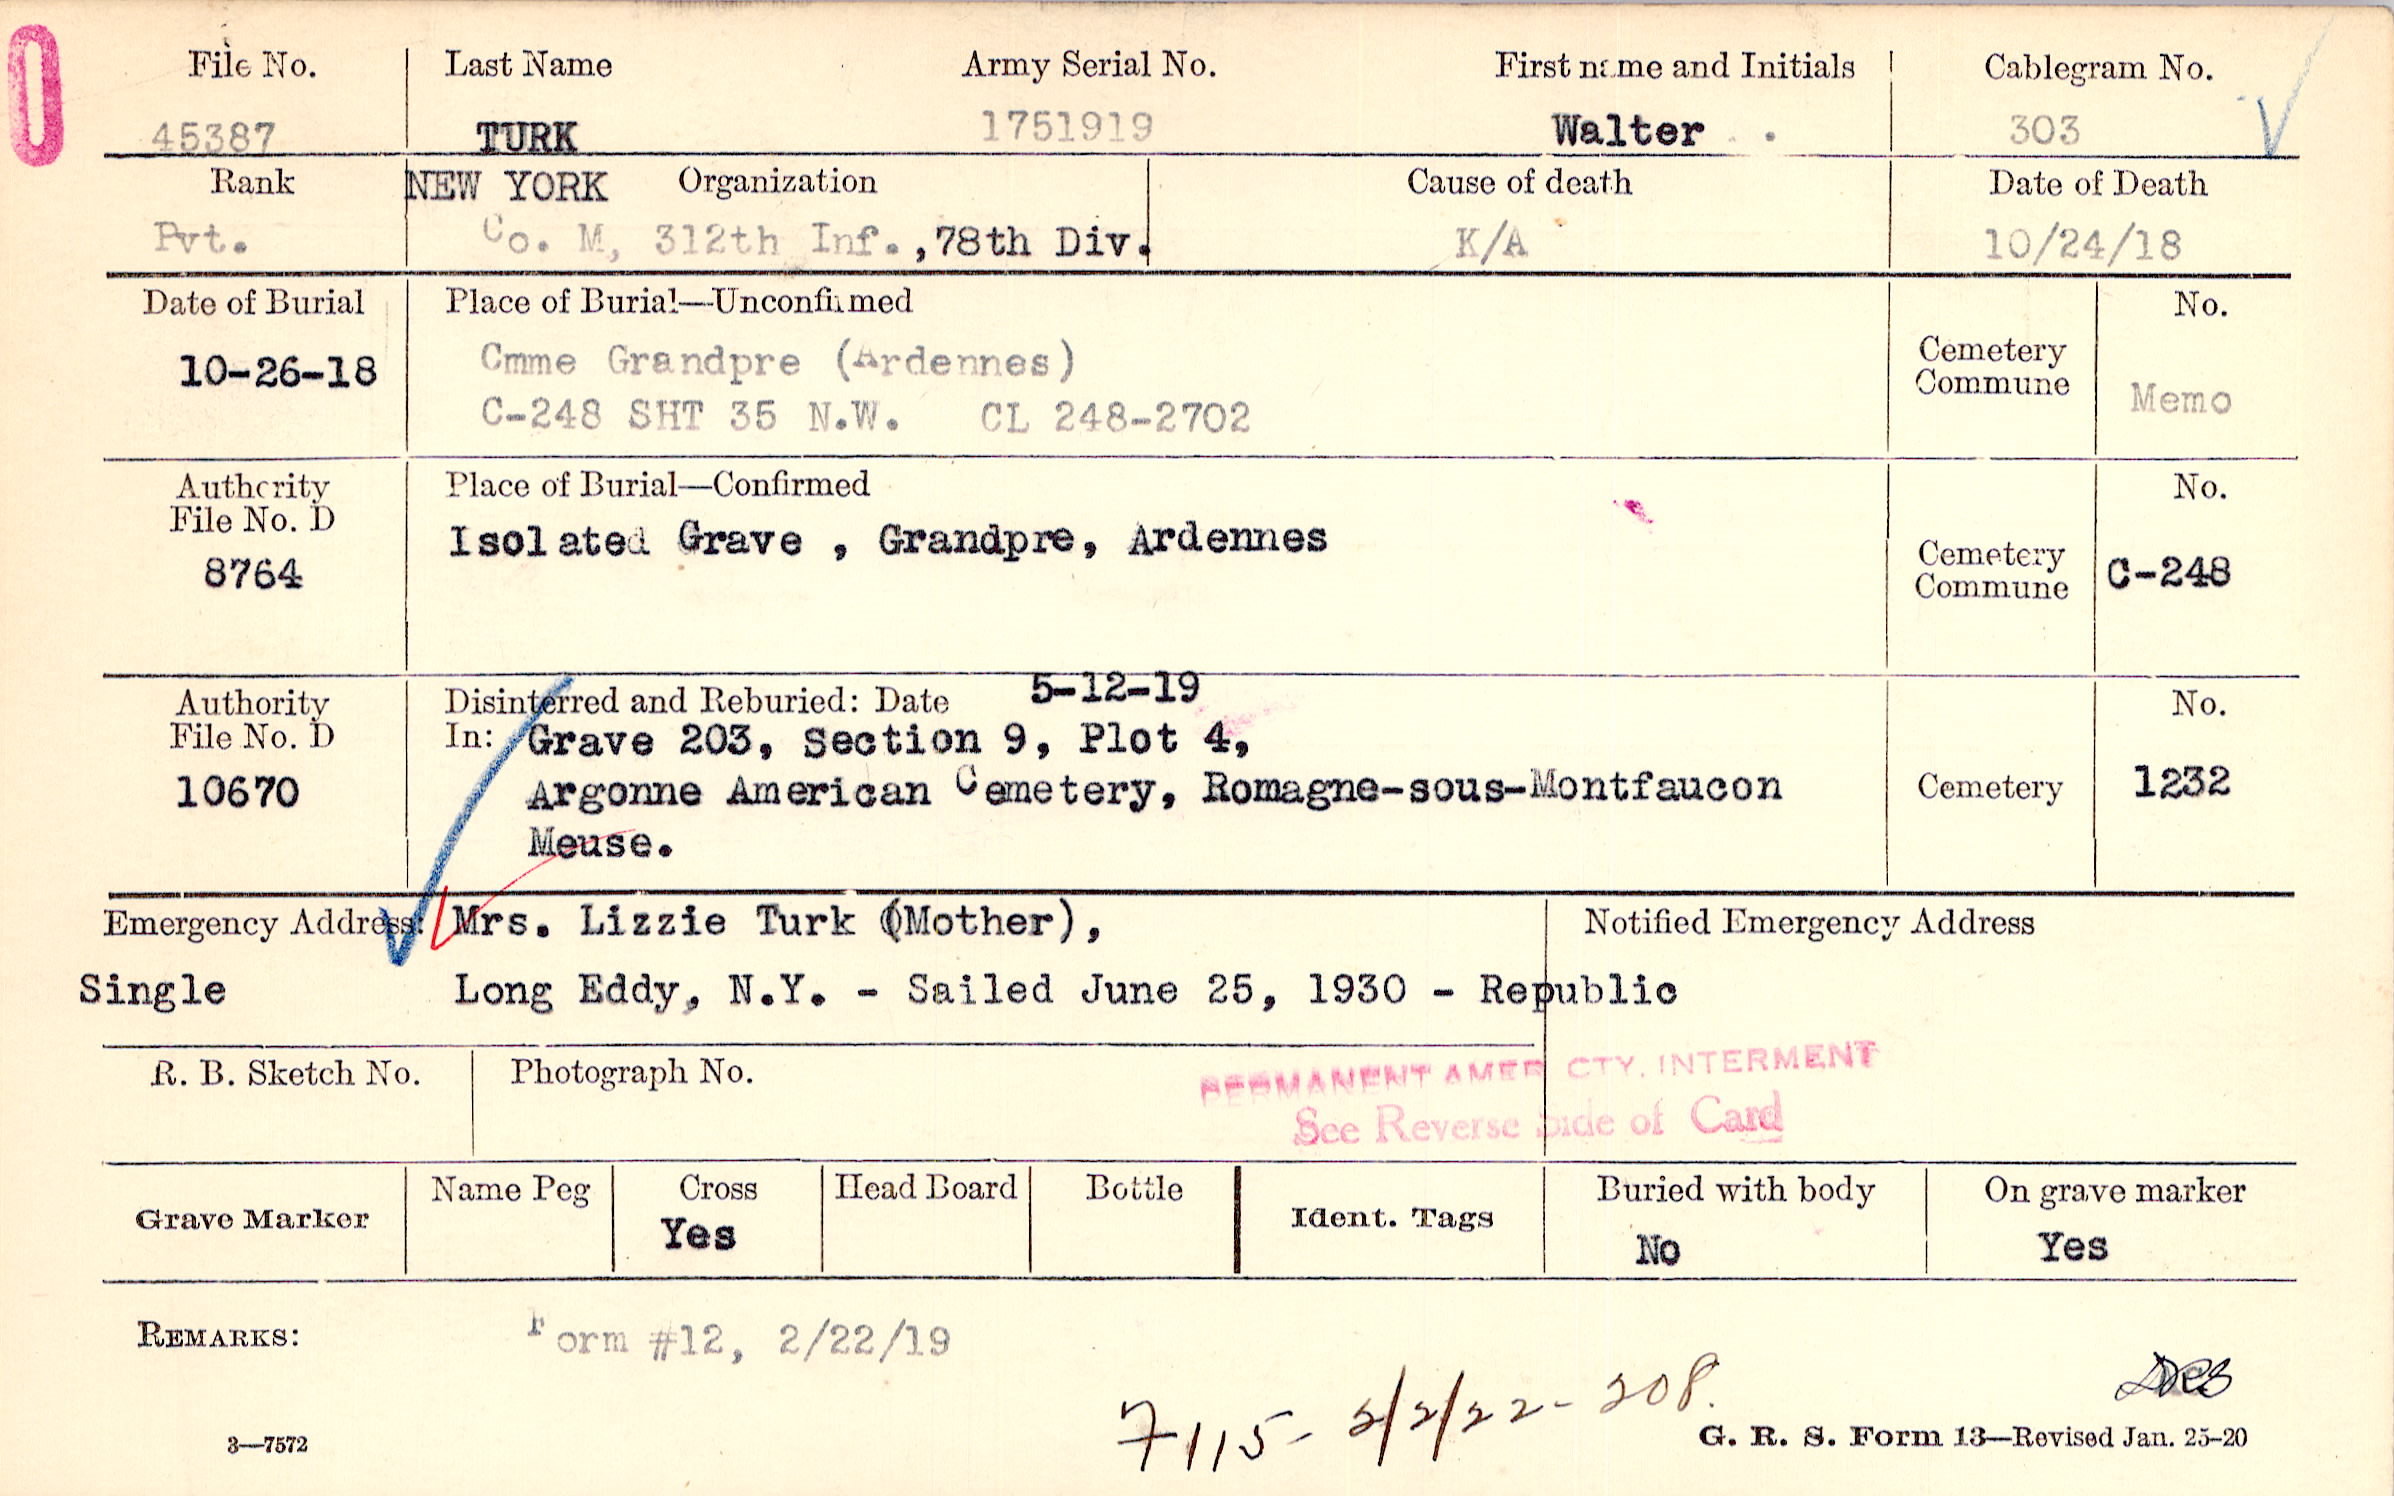 File No. Last Name Army Serial No. First name and Initials Cablegram No.
45387 TURK 1751919 Walter . 303
Rank NEW YORK Organization Cause of death Date of Death
Pvt. Co. M, 312th Inf.,78th Div. K/A 10/24/18
Date of Burial Place of Burial—Unconfirmed No.
10-26-18 Cmme Grandpre (Ardennes) Cemetery
Commune
C-248 SHT 35 N.W. CL 248-2702 Memo
Authority Place of Burial—Confirmed No.
File No. D
8764 Isolated Grave , Grandpre, Ardennes Cemetery
Commune C-248
Authority Disinterred and Reburied: Date 5-12-19 No.
File No. D In: Grave 203, Section 9, Plot 4,
10670 Argonne American Cemetery, Romagne-sous-Montfaucon Cemetery 1232
Meuse.
Emergency Address: Mrs. Lizzie Turk (Mother), Notified Emergency Address
Single Long Eddy, N.Y. - Sailed June 25, 1930 - Republic
R. B. Sketch No. Photograph No. PERMANENT AMER CTY. INTERMENT
See Reverse Side of Card
Grave Marker Name Peg Cross Head Board Bottle Ident. Tags Buried with body On grave marker
Yes No Yes
REMARKS: Form #12, 2/22/19
7115- 2/2/22- 208.
3—7572 G. R. S. Form 13—Revised Jan. 25-20